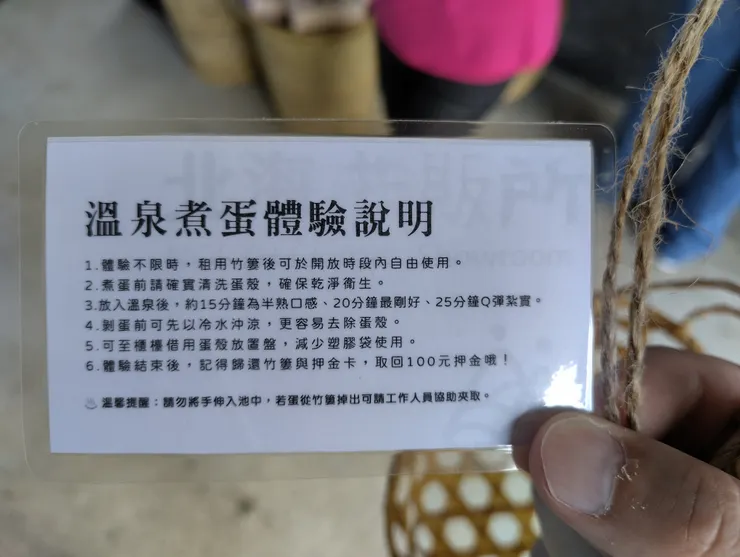 溫泉煮蛋體驗說明
1.體驗不限時，租用竹簍後可於開放時段內自由使用。
2.煮蛋前請確實清洗蛋殼，確保乾淨衛生。
3.放入溫泉後，約15分鐘為半熟口感、20分鐘最剛好、25分鐘Q彈紮實。
4.剝蛋前可先以冷水沖涼，更容易去除蛋殼。
5.可至櫃檯借用蛋殼放置盤，減少塑膠袋使用。
6.體驗結束後，記得歸還竹簍與押金卡，取回100元押金哦！
♨ 溫馨提醒：請勿將手伸入池中，若蛋從竹簍掉出可請工作人員協助夾取。